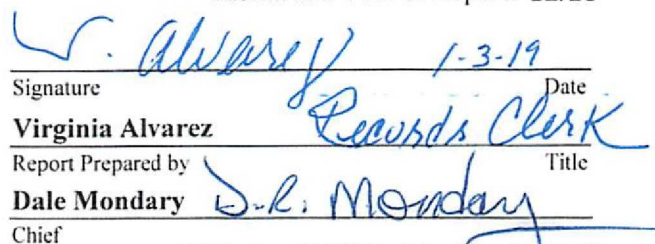 V. Alvarez 1-3-19
Signature Date
Virginia Alvarez Records Clerk
Report Prepared by Title
Dale Mondary D.R. Mondary
Chief